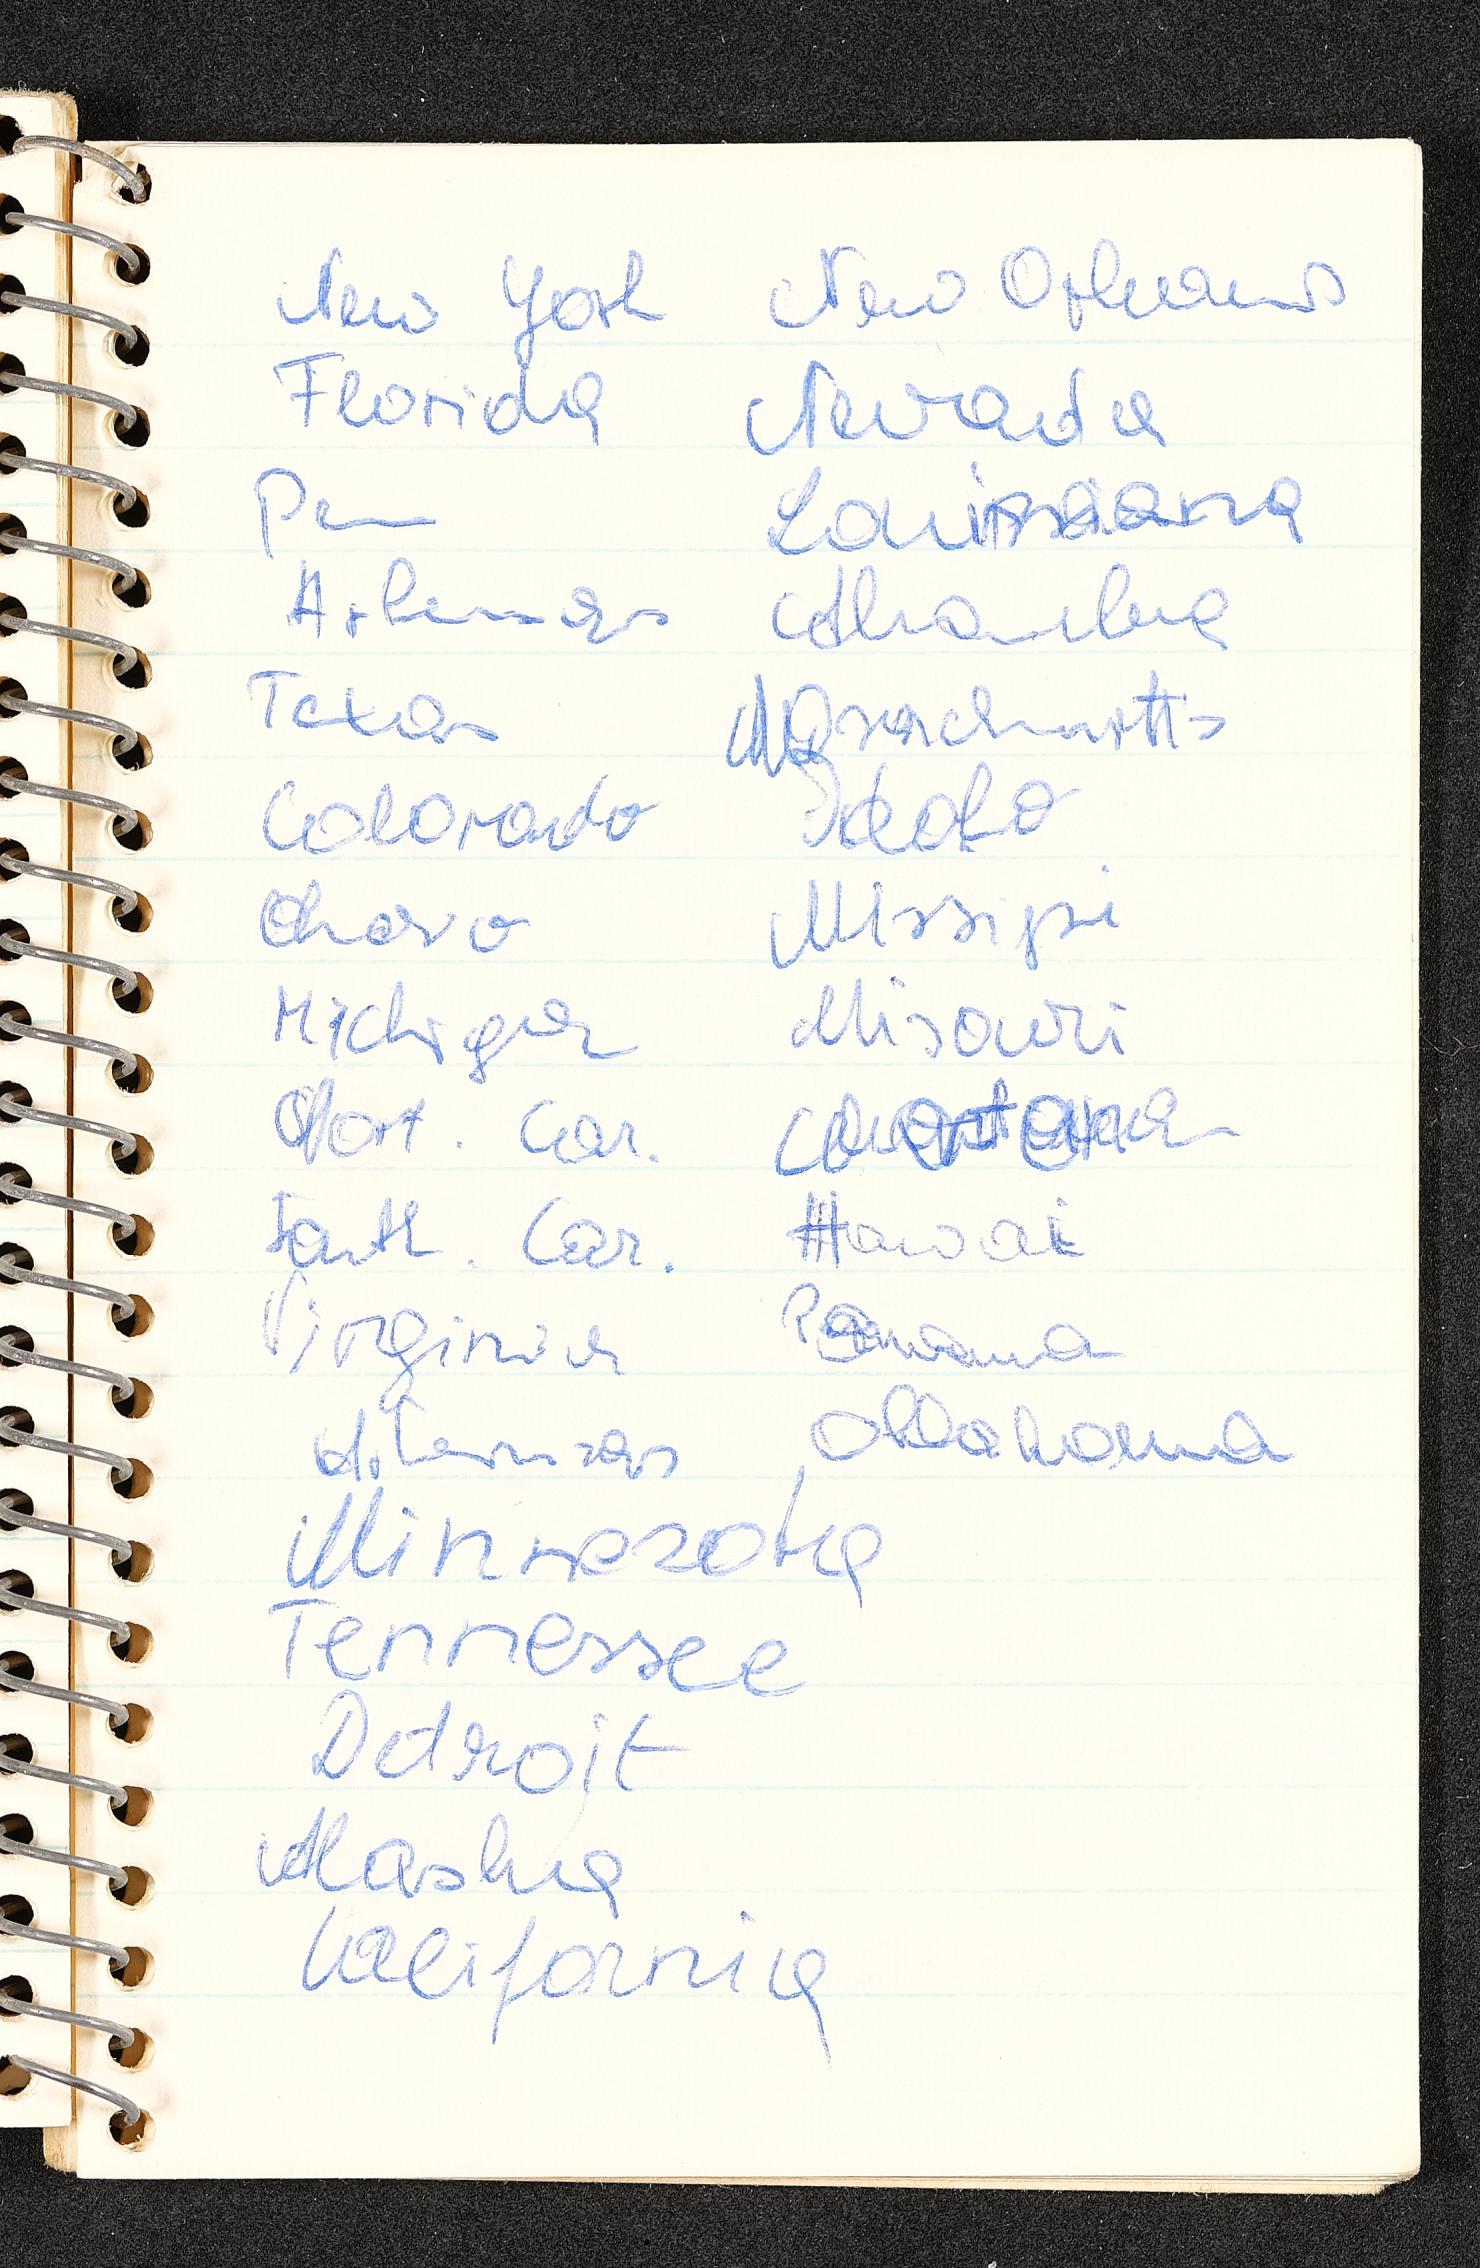 New York
Florida
Pen
Arkansas
Texas
Colorado
Michigan
Nort. Car.
South. Car.
Virginia
Arkansas
Minnesota
Tennessee
Detroit
Alaska
California
New Orleans
Nevada
Louisiana
Massachusetts
Idaho
Missipi
Misouri
Montana
Hawai
Panama
Oklahoma